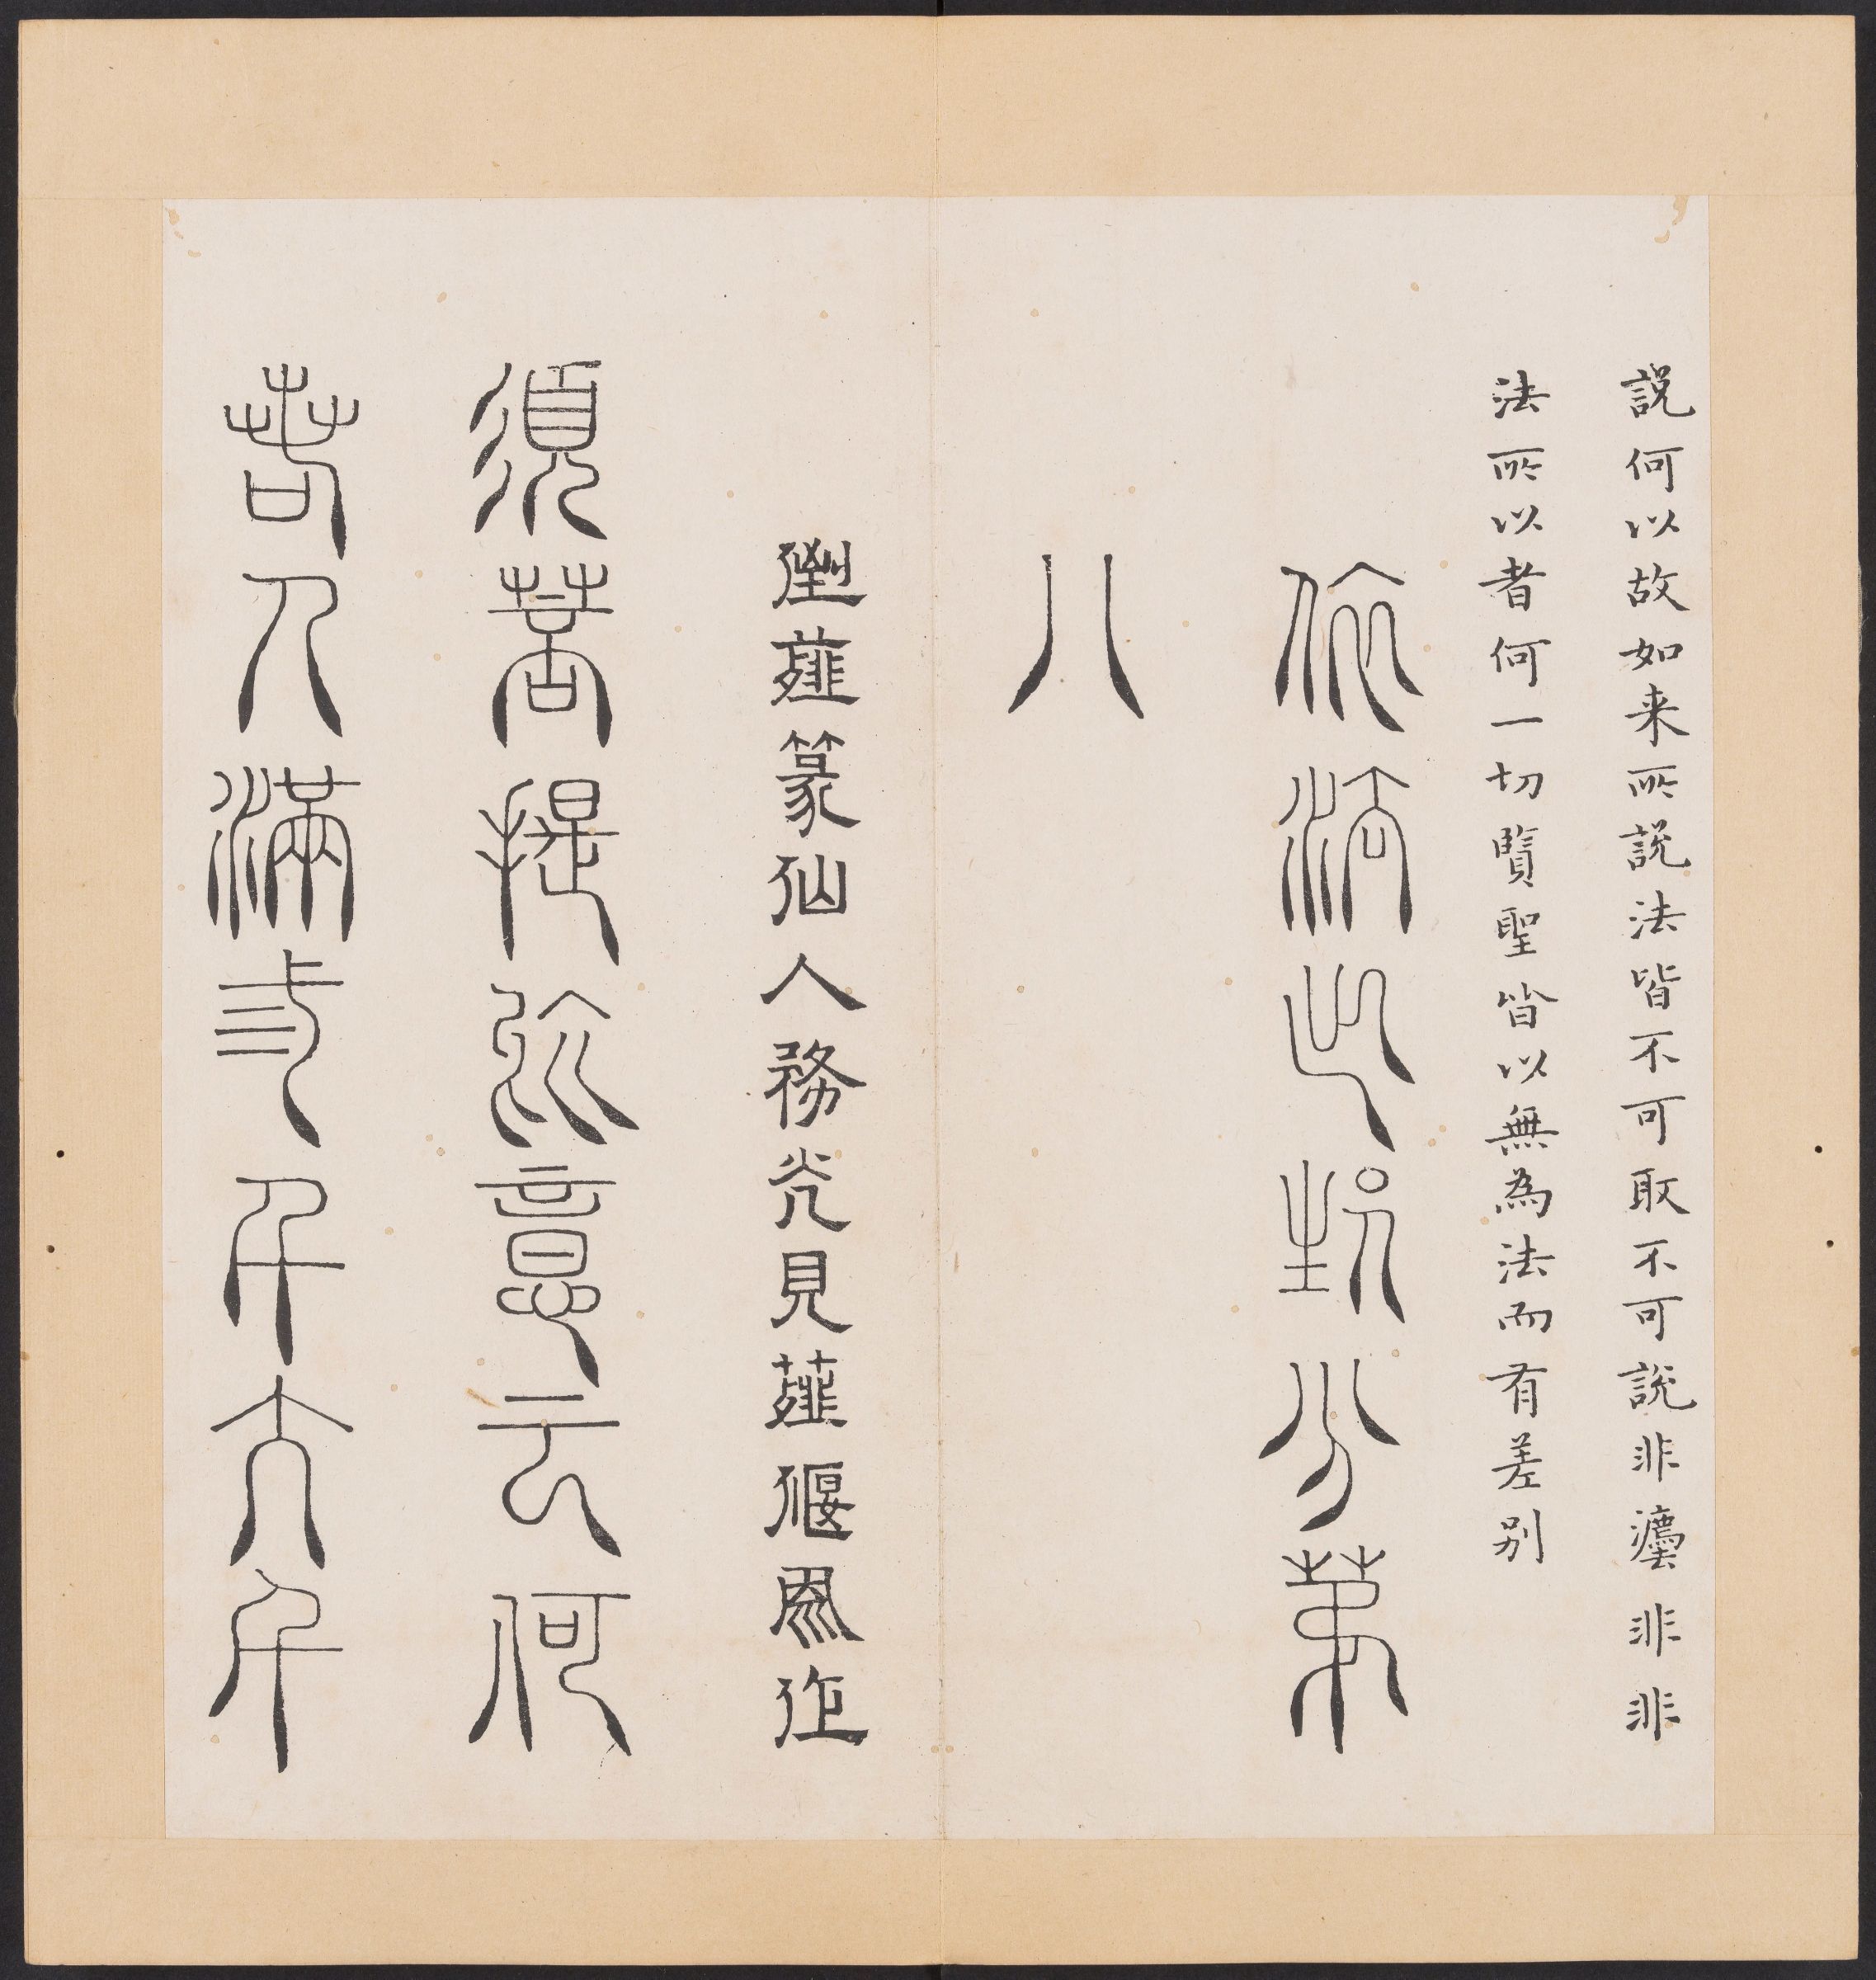 說何以故如来所說法皆不可取不可說非灋非非
法所以者何一切賢聖皆以無為法而有差別
依法出生分第
八
倒薤篆仙人務光見薤偃風作
須菩提於意云何
若人滿三千大千